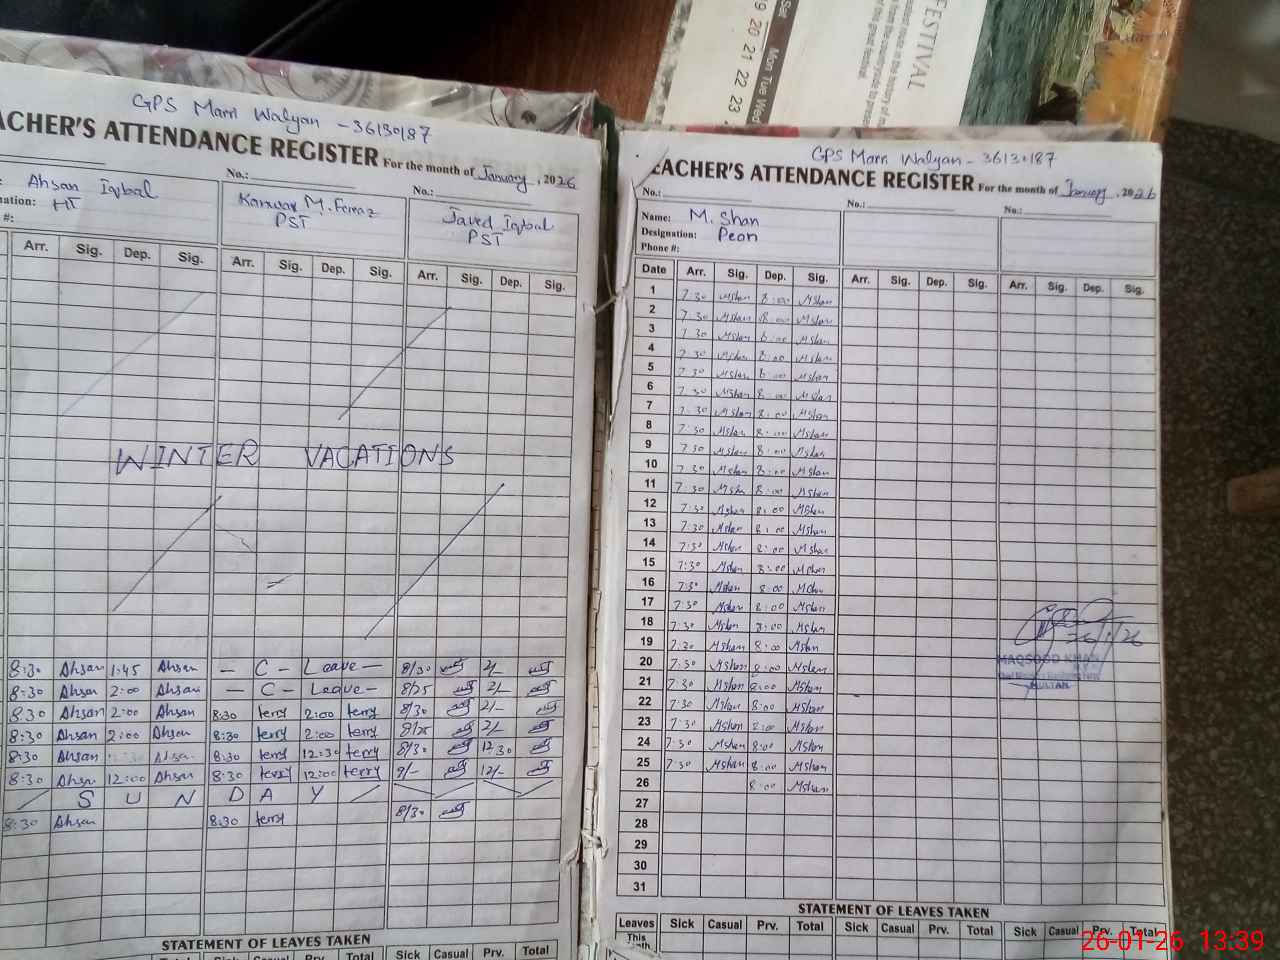 FESTIVAL
Sat Mon Tue Wed
19 20 21 22 23
GPS Marri Walyan - 36130187
ACHER'S ATTENDANCE REGISTER For the month of January, 2026
No.: No.:
Ahsan Iqbal
nation: HT
#:
Kanwar M. Feraz
PST
Javed Iqbal
PST
Arr. Sig. Dep. Sig. Arr. Sig. Dep. Sig. Arr. Sig. Dep. Sig.
WINTER VACATIONS
8:30 Ahsan 1:45 Ahsan — C - Leave — 8/30 2/-
8:30 Ahsan 2:00 Ahsan — C - Leave - 8/25 2/-
8:30 Ahsan 2:00 Ahsan 8:30 terry 2:00 terry 8/30 2/-
8:30 Ahsan 2:00 Ahsan 8:30 terry 2:00 terry 8/25 2/-
8:30 Ahsan Ahsan 8:30 terry 12:30 terry 8/30 12.30
8:30 Ahsan 12:00 Ahsan 8:30 terry 12:00 terry 9/- 12/-
S U N D A Y
8:30 Ahsan 8:30 terry 8/30
STATEMENT OF LEAVES TAKEN
Sick Casual Prv. Total Sick Casual Prv. Total
GPS Marri Walyan - 36130187
EACHER'S ATTENDANCE REGISTER For the month of January, 2026
No.: No.: No.:
Name: M. Shan
Designation: Peon
Phone #:
Date Arr. Sig. Dep. Sig. Arr. Sig. Dep. Sig. Arr. Sig. Dep. Sig.
1 7:30 Mshan 8:00 Mshan
2 7:30 Mshan 8:00 Mshan
3 7:30 Mshan 8:00 Mshan
4 7:30 Mshan 8:00 Mshan
5 7:30 Mshan 8:00 Mshan
6 7:30 Mshan 8:00 Mshan
7 7:30 Mshan 8:00 Mshan
8 7:30 Mshan 8:00 Mshan
9 7:30 Mshan 8:00 Mshan
10 7:30 Mshan 8:00 Mshan
11 7:30 Mshan 8:00 Mshan
12 7:30 Mshan 8:00 Mshan
13 7:30 Mshan 8:00 Mshan
14 7:30 Mshan 8:00 Mshan
15 7:30 Mshan 8:00 Mshan
16 7:30 Mshan 8:00 Mshan
17 7:30 Mshan 8:00 Mshan
18 7:30 Mshan 8:00 Mshan
19 7:30 Mshan 8:00 Mshan
20 7:30 Mshan 8:00 Mshan
21 7:30 Mshan 8:00 Mshan
22 7:30 Mshan 8:00 Mshan
23 7:30 Mshan 8:00 Mshan
24 7:30 Mshan 8:00 Mshan
25 7:30 Mshan 8:00 Mshan
26 8:00 Mshan
27
28
29
30
31
26/1/26
MAQSOOD KHAN
MULTAN
STATEMENT OF LEAVES TAKEN
Leaves Sick Casual Prv. Total Sick Casual Prv. Total Sick Casual Prv. Total
This
26-01-26 13:39